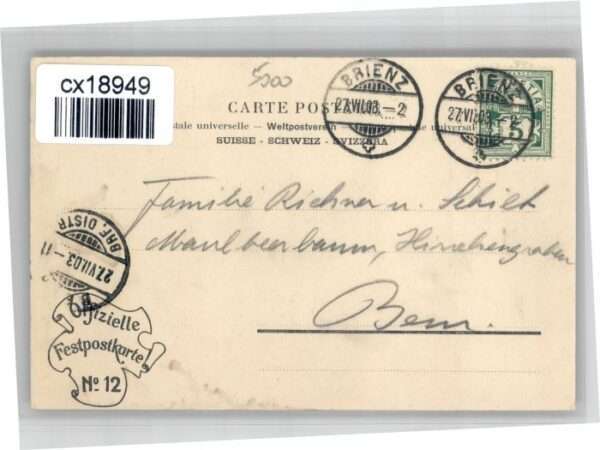 cx18949
5000
CARTE POSTALE
Union postale universelle — Weltpostverein — Unione postale universale
SUISSE - SCHWEIZ - SVIZZERA
BRIENZ
27.VII.03. – 2
BRIENZ
27.VII.03.
5
Familie Richner u. Schilt
Maulbeerbaum, Hirschengraben
Bern.
BRF. DISTR
27.VII.03. – 11
Offizielle
Festpostkarte
No 12